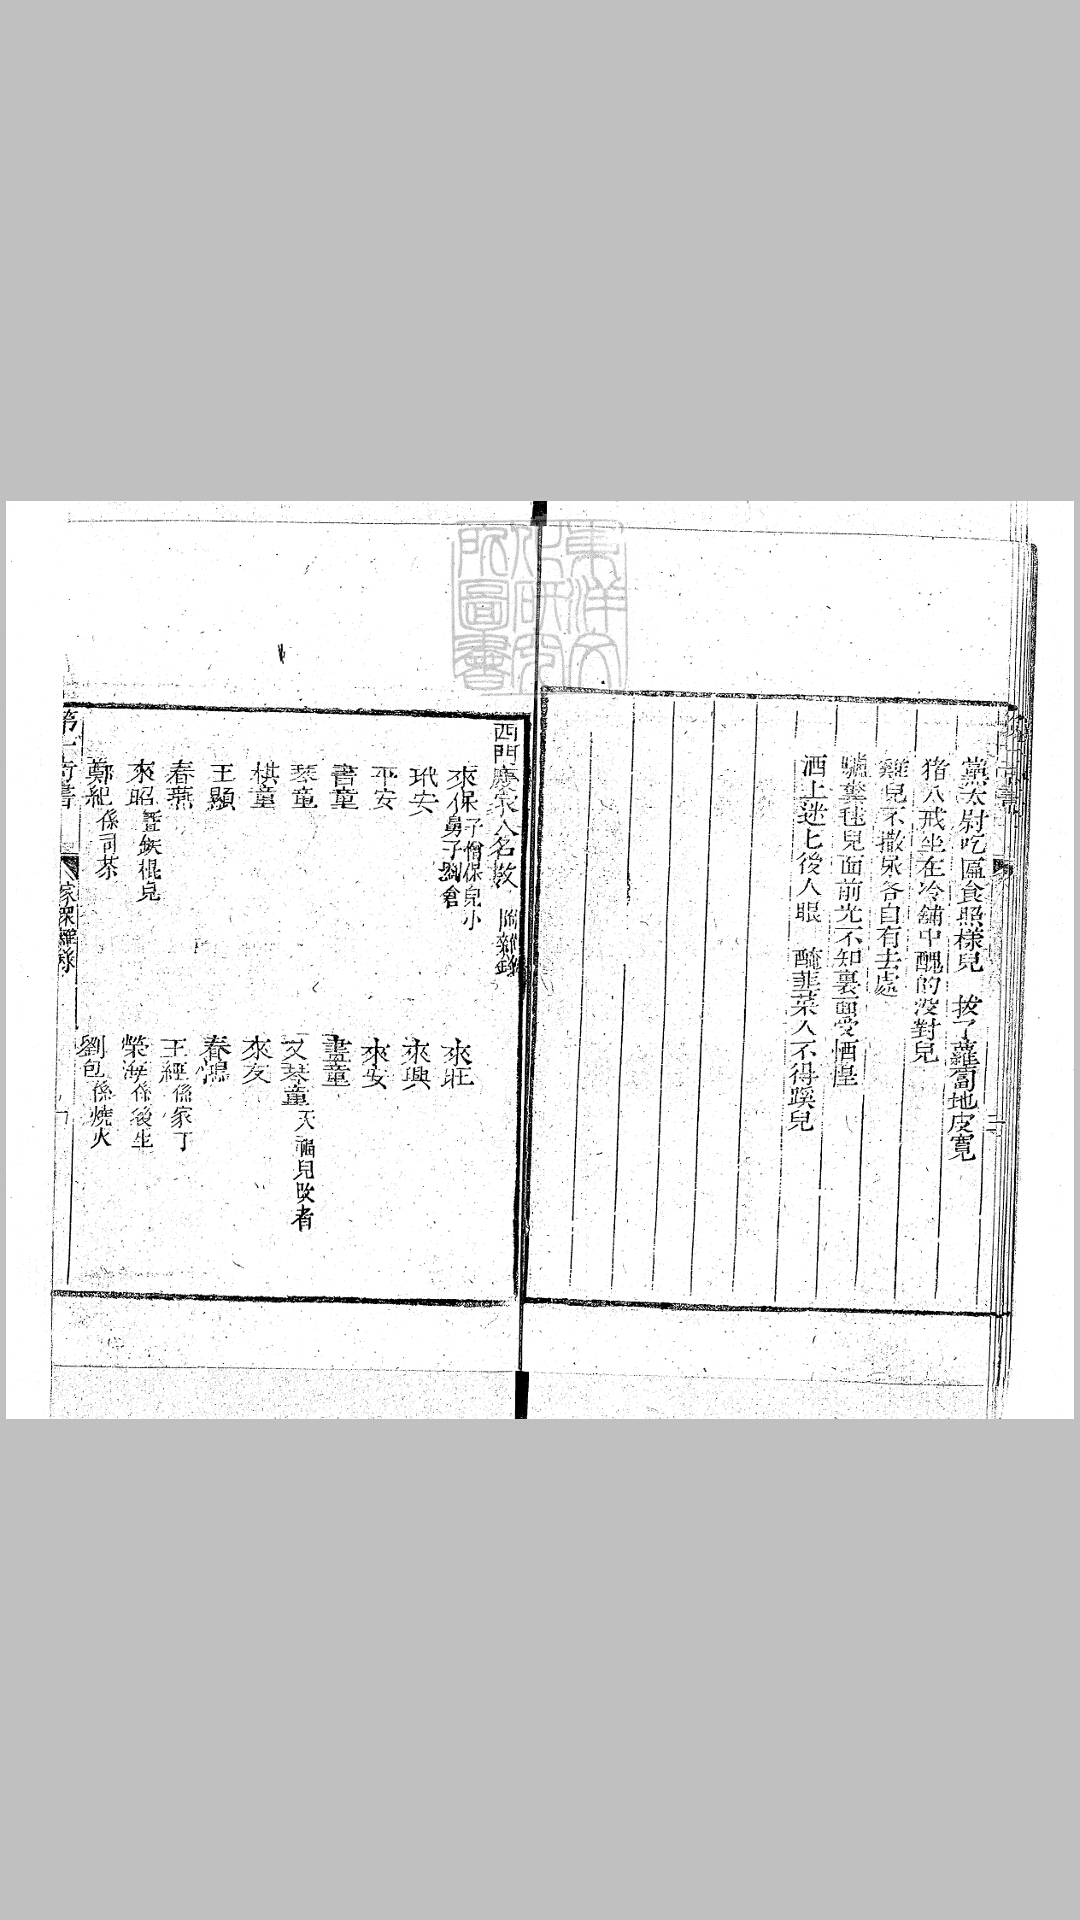 黨太尉吃匾食照樣兒　拔了蘿蔔地皮寬
猪八戒坐在冷鋪中醜的沒對兒
雞兒不撒尿各自有去處
驢糞毬兒面前光不知裏面受恓惶
洒上迷七後人眼　醃韭菜人不得蹊兒
西門慶家人名數　附雜錄
來保子僧保兒小舅子劉倉　來旺
玳安　來興
平安　來安
書童　畫童
琴童　又琴童天福兒改者
棋童　來友
王顯　春鴻
春燕　王經係家丁
來昭暨鉄棍兒　榮海係後生
鄭紀係司茶　劉包係燒火
第一奇書　家眾雜錄
東洋文化研究所圖書